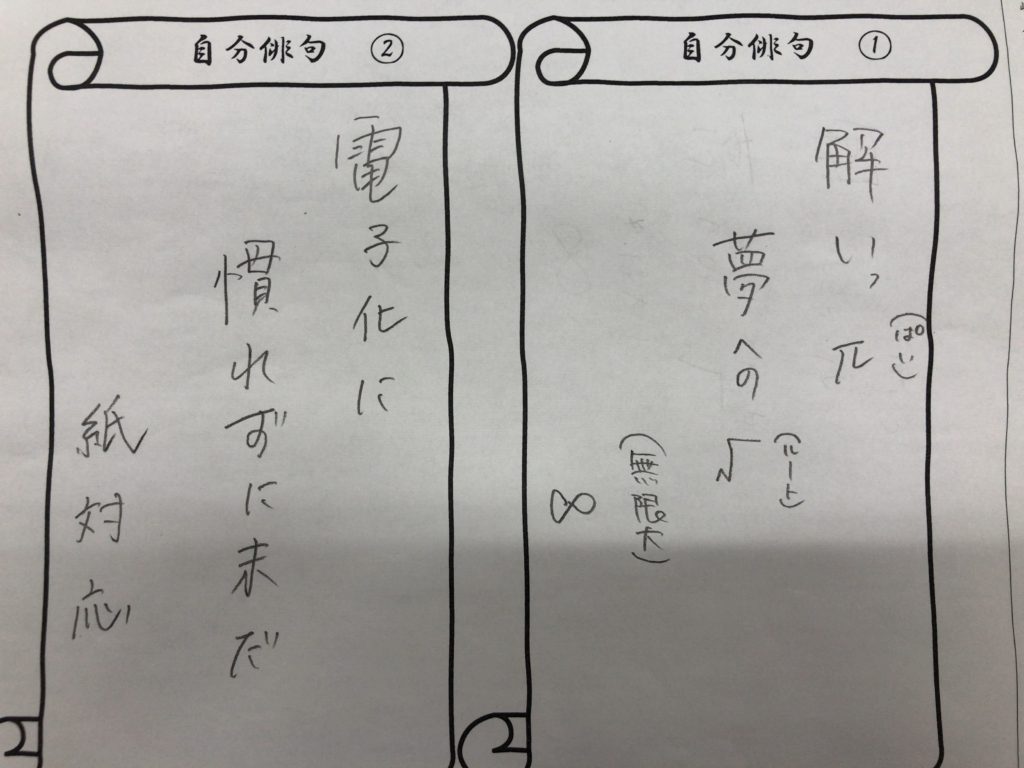 自分俳句 ①
解いっπ
(ぱい)
夢への√
(ルート)
∞
(無限大)
自分俳句 ②
電子化に
慣れずに未だ
紙対応